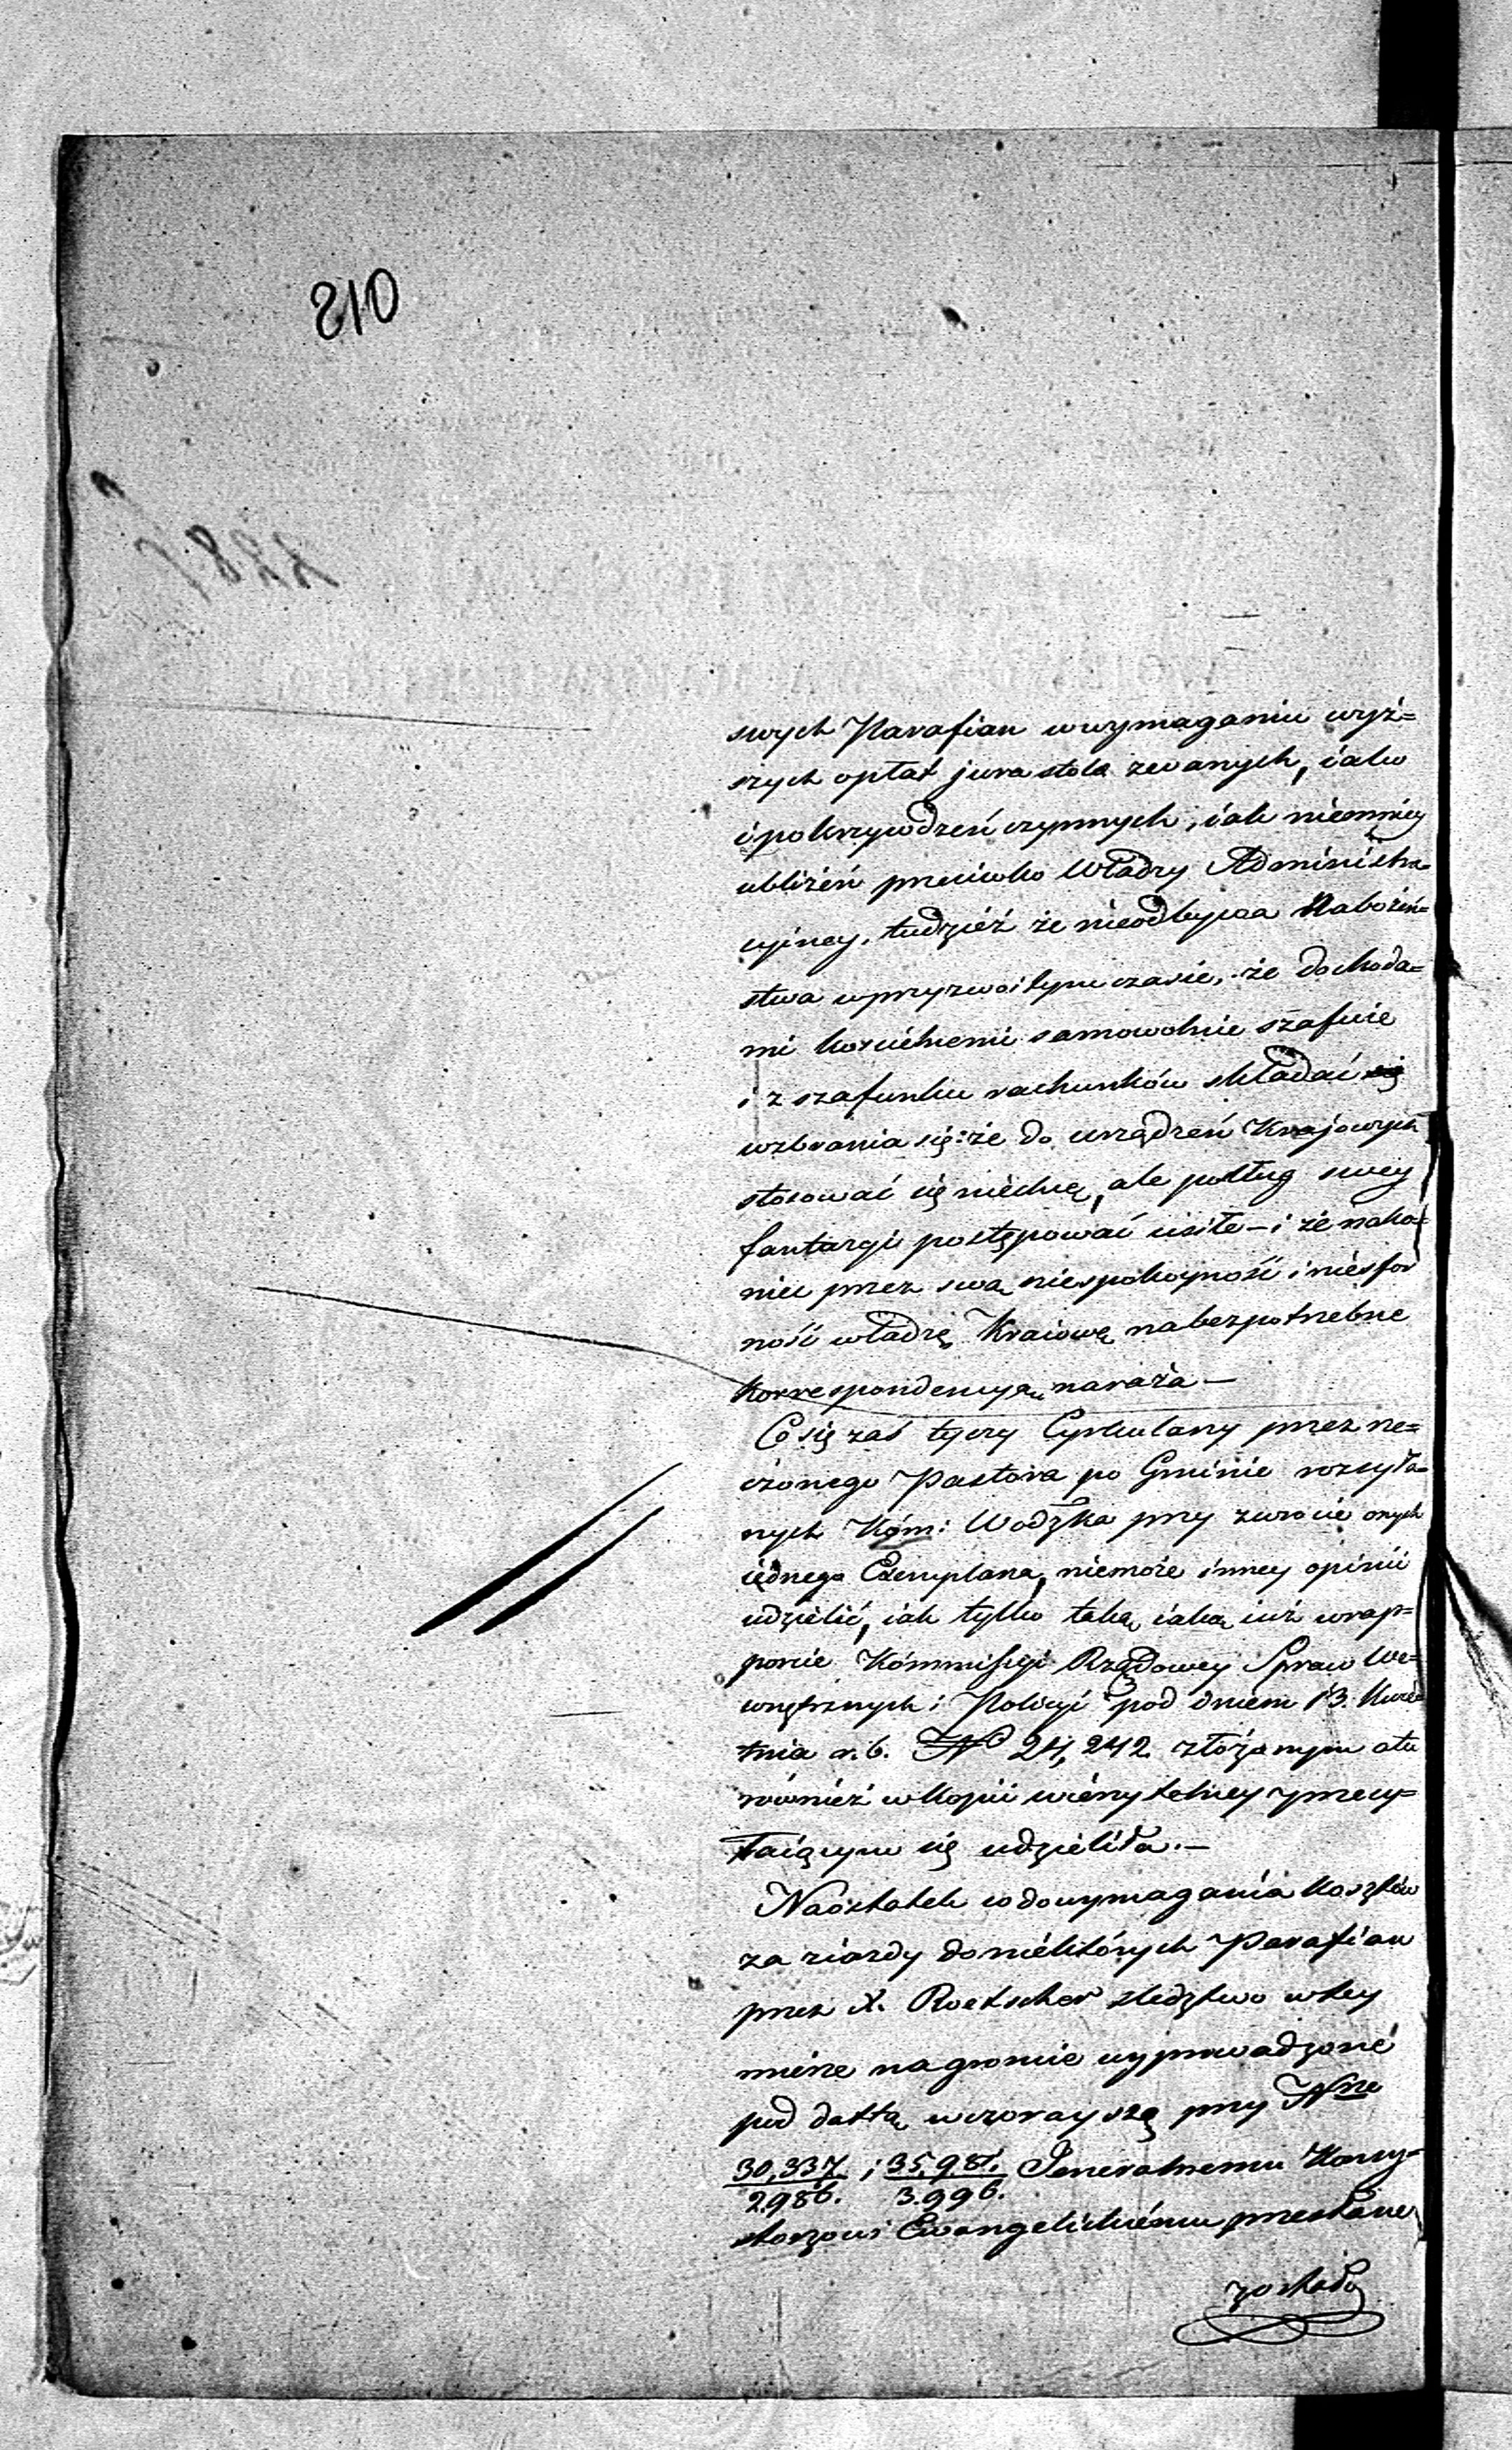 swych Parafian w wymaganiu wyż=
szych opłat jura stolæ zwanych, iako
i pokrzywdzeń czynnych, iak niemniey
ubliżeń przeciwko Władzy Administra=
cyiney, tudzież że nieodbywa Nabożeń=
stwa w przyzwoitym czasie, że dochoda=
mi kościelnemi samowolnie szafuie
i z szafunku rachunków składać
wzbrania się: że do urządzeń Krajowych
stosować się niechce, ale podług swey
fantazyi postępować usiłe – i że nako=
niec przez swą niespokoyność i niesfor
ność władzę Kraiową na bezpotrzebne
Korrespondencye naraża –
Co się zaś tyczy Cyrkularzy przez rze=
czonego Pastora po Gminie rozsyła=
nych Kom: Wodzka przy zwrocie onych
iednego Exemplarza, niemoże inney opinii
udzielić, iak tylko taką iaką iuż w rap=
porcie Kommissyi Rządowey Spraw We=
wnętrznych i Policyi pod dniem 13. Kwie
tnia r. b. N 24,242 złożonym a tu
również w Kopii wierzytelney przy=
łaiącym się udzieliła. –
Naostatek co do wymagania kosztów
za ziazdy do niektórych Parafian
przez X. Roetscher śledztwo w tey
mierze na gruncie wyprowadzone
pod dattą wczorayszą przy Nne
30,337. i 35,981. Jeneralnemu Konsy=
2986. 3.996.
storzowi Ewangelickiemu przesłane
zostało